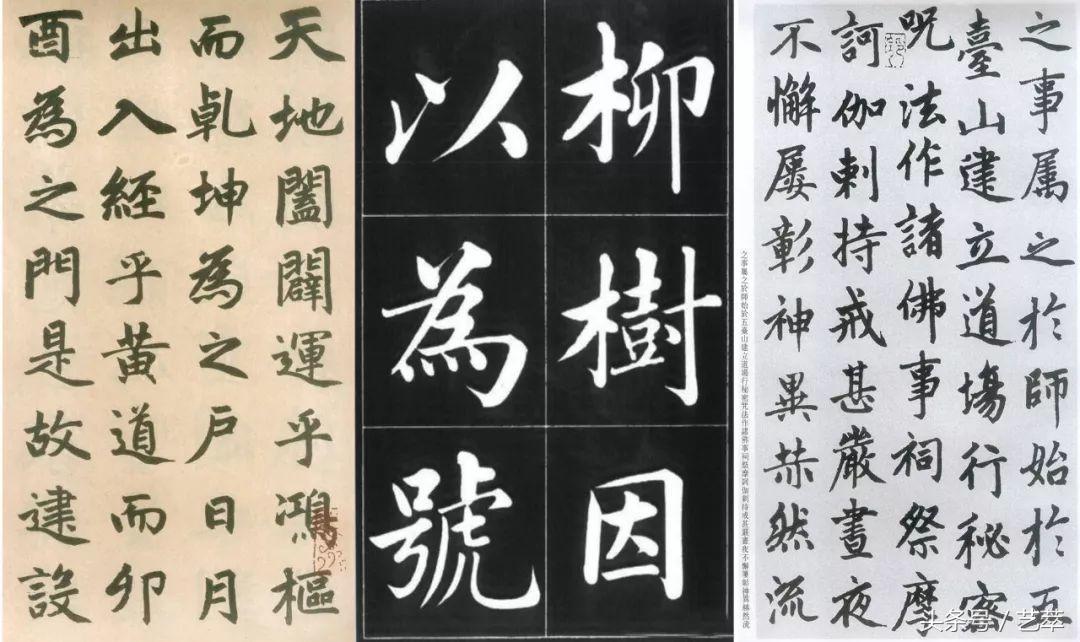 天地闔闢運乎鴻樞
而乹坤為之户日月
出入經乎黄道而卯
酉為之門是故建設
柳樹因
以為號
之事属之於師始於五
臺山建立道場行秘密
咒法作諸佛事祠祭摩
訶伽剌持戒甚嚴晝夜
不懈屡彰神異赫然流
之事屬之於師始於五臺山建立道場行秘密咒法作諸佛事祠祭摩訶伽剌持戒甚嚴晝夜不懈屢彰神異赫然流
头条号 / 艺萃